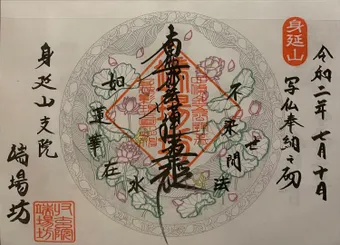 身延山
令和二年七月十日
写仏奉納之砌
不染世間法
南無妙法蓮華経
如蓮華在水
身延山支院
端場坊